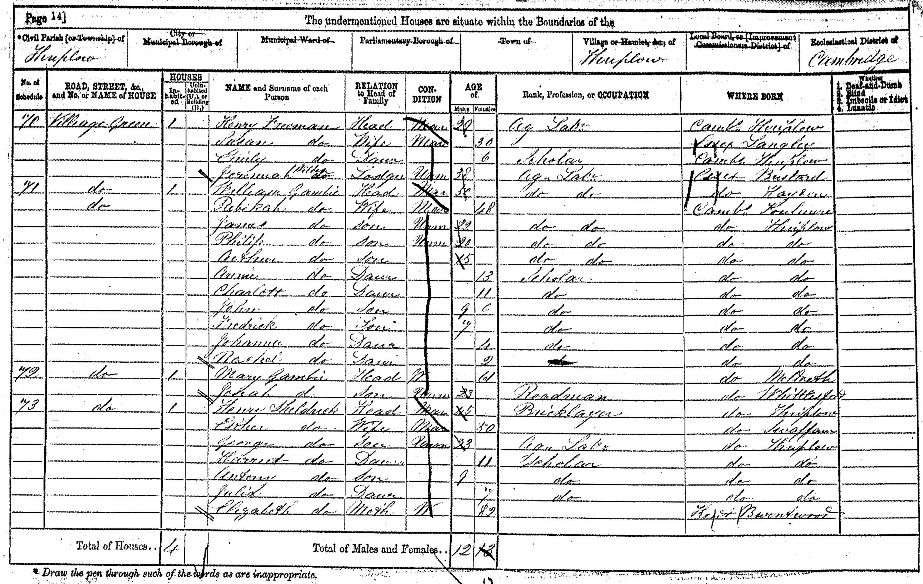 Page 14]
The undermentioned Houses are situate within the Boundaries of the
*Civil Parish [or Township] of City or Municipal Borough of Municipal Ward of Parliamentary Borough of Town of Village or Hamlet, &c., of Local Board, or [Improvement Commissioners District] of Ecclesiastical District of
Thriplow Thriplow Cambridge
No. of Schedule ROAD, STREET, &c., and No. or NAME of HOUSE HOUSES Inhabited NAME and Surname of each Person RELATION to Head of Family CONDITION AGE of Males Females Rank, Profession, or OCCUPATION WHERE BORN Whether 1. Deaf-and-Dumb 2. Blind 3. Imbecile or Idiot 4. Lunatic
70 Village Green 1 Henry Freeman Head Mar Ag Lab Cambs Thriplow
Susan do Wife Mar 30 Essex Langley
Emily do Daur 6 Scholar Cambs Thriplow
Jeremiah Lodger Unm 38 Ag Lab Essex
71 do 1 William Gambie Head Mar 50 do do do
do Rebekah do Wife Mar 48 Cambs Foulmire
James do son Unm 22 do do do Thriplow
Philip do son Unm 20 do do do do
Arthur do son 15 do do do do
Annie do Daur 13 Scholar do do
Charlott do Daur 11 do do do
John do Son 9 do do do
Fredrick do Son 7 do do do
Johanna do Daur 4 do do do
Rachel do Daur 2 do do do
72 do 1 Mary Gambie Head W 61 do Melbreth
do son Unm 23 Roadman do Whittlesford
73 do 1 Henry Sheldrick Head Mar 45 Bricklayer do Thriplow
Esther do Wife Mar 50 do Swaffam
George do Son Unm 23 Ag Lab do Thriplow
Harriet do Daur 11 Scholar do do
Antony do son 9 do do do
Julia do Daur 7 do do do
Elizabeth do Moth W 82 Essex Brentwood
Total of Houses.. 4 Total of Males and Females.. 12 12
* Draw the pen through such of the words as are inappropriate.